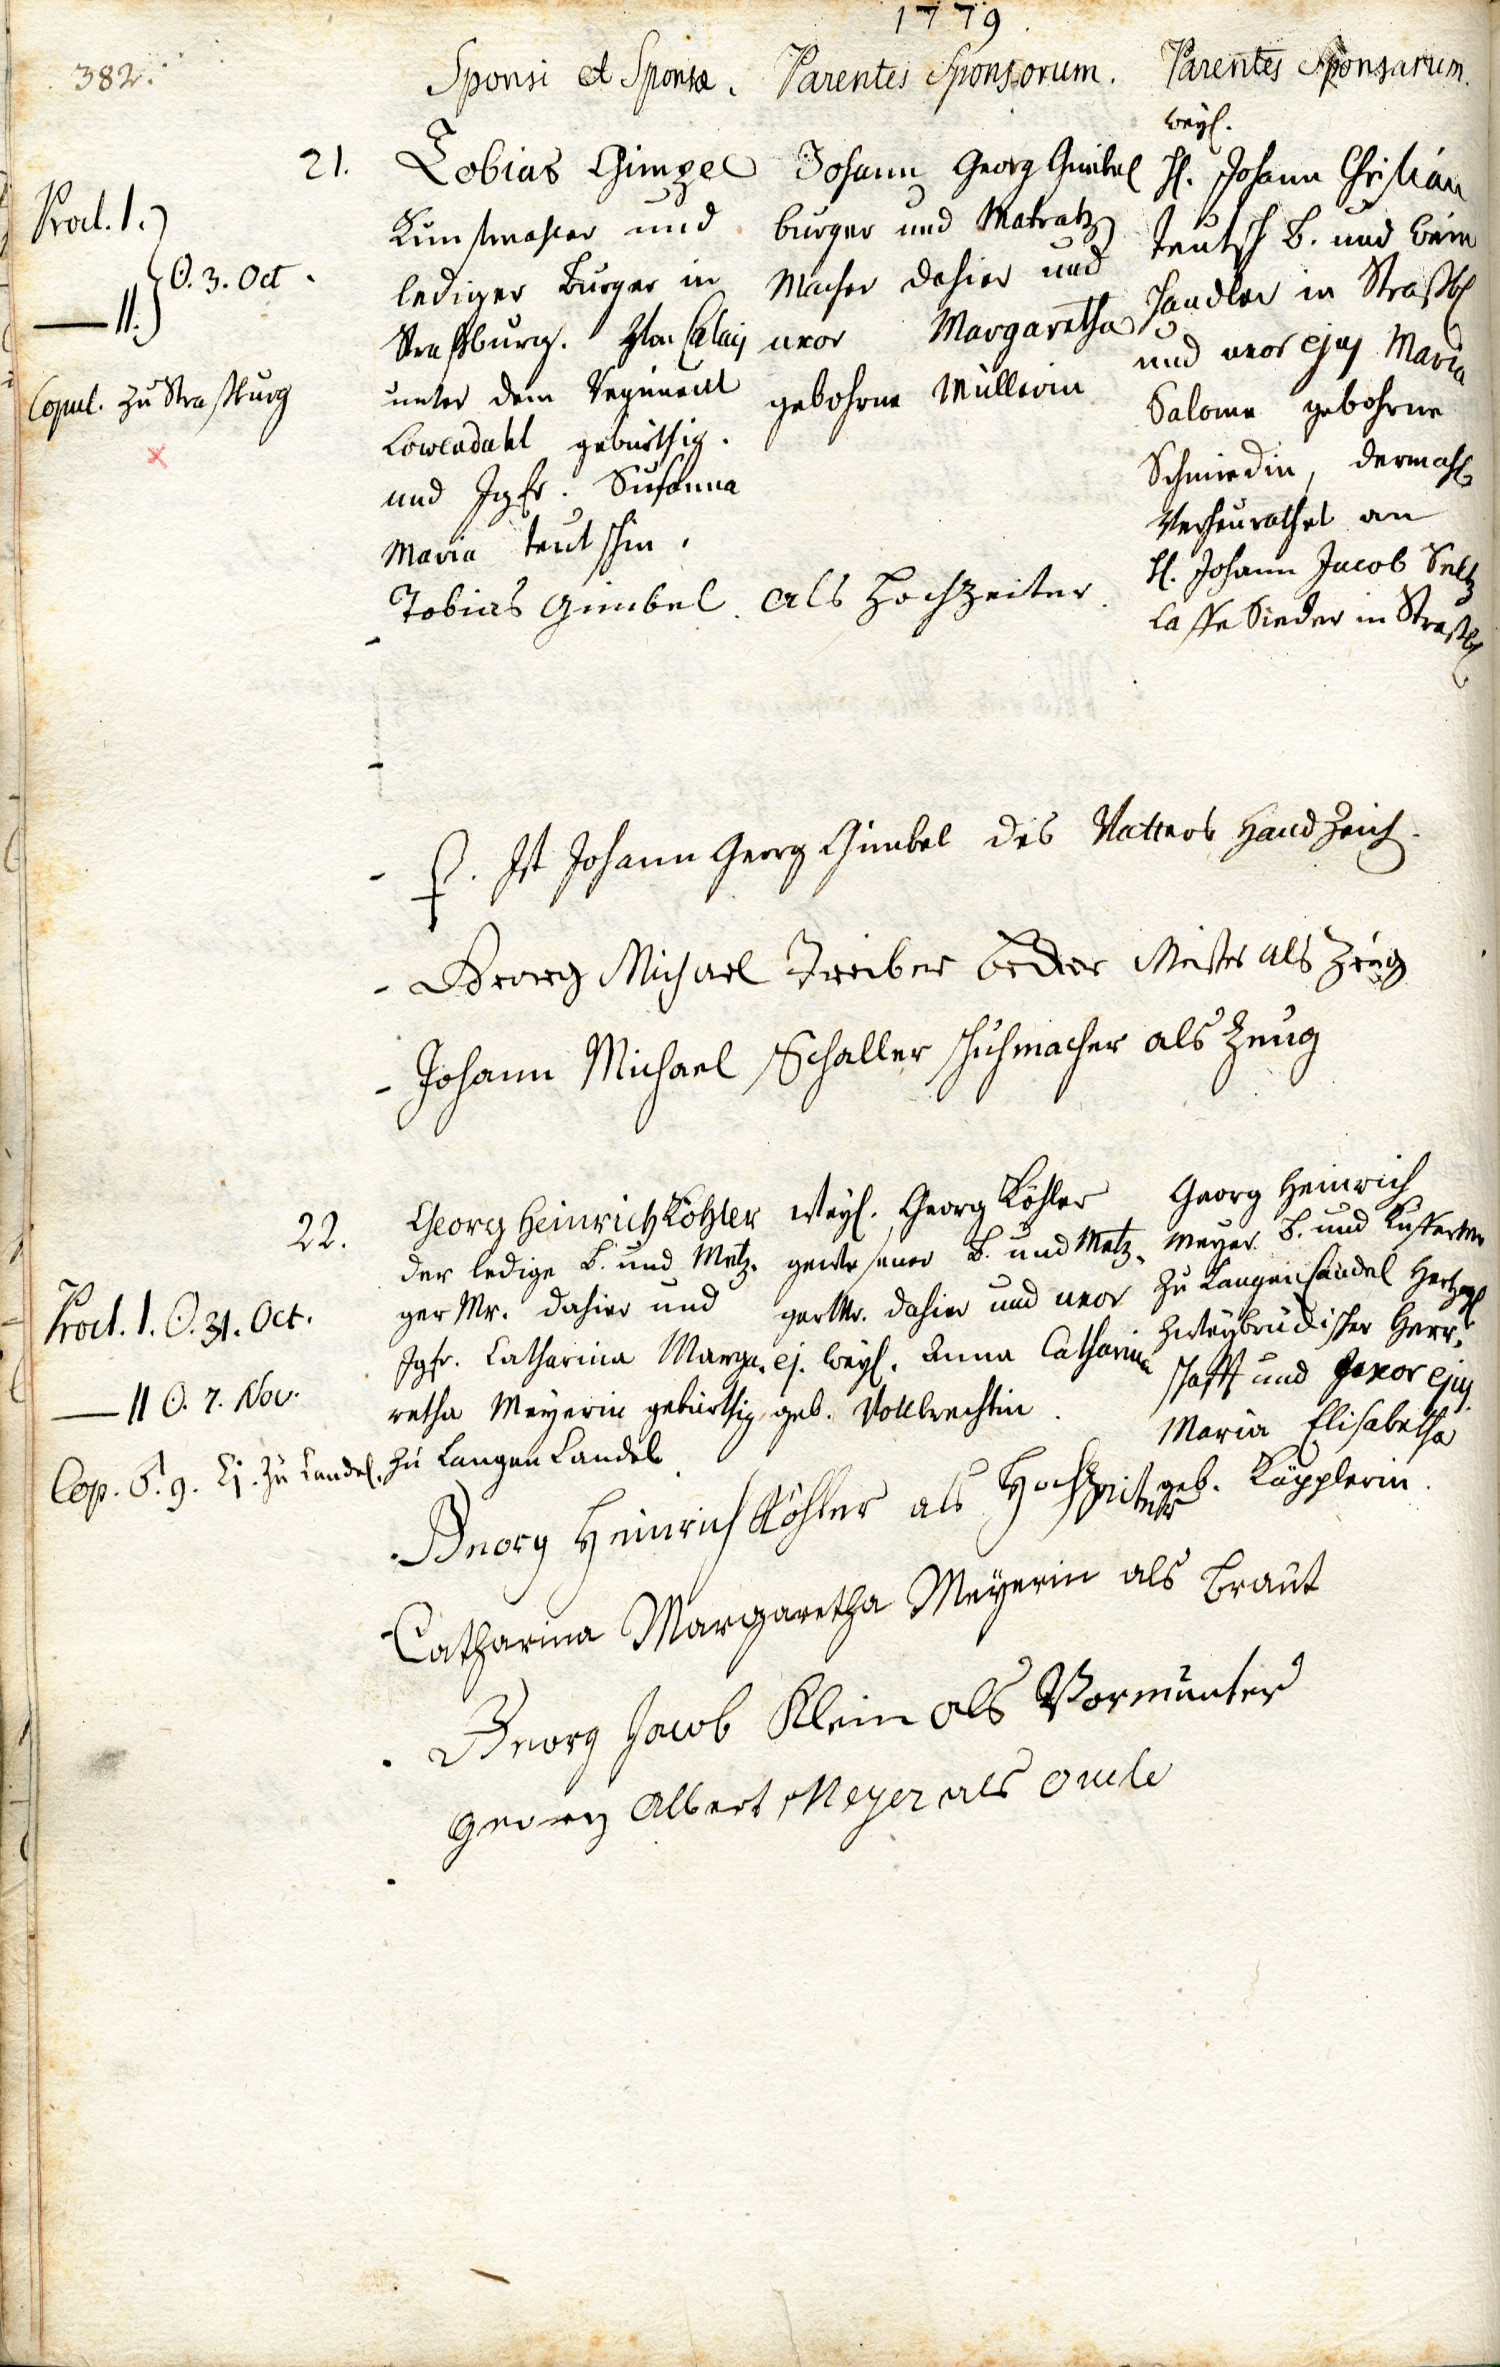 1779.
382.
Sponsi et Sponsæ.
Parentes Sponsorum.
Parentes Sponsarum.
21.
Procl. I.
— II.
O. 3. Oct.
Copul. zu Straßburg
Tobias Gimpel
Kunstmahler und
lediger Burger in
Straßburg. Von Calais
unter dem Regiment
Lowendahl gebürthig.
und Jgfr. Susanna
Maria Teutschin.
Johann Georg Gimbel
burger und Matratz
Macher dahier und
uxor Margaretha
gebohrne Müllerin
weyl.
H. Johann Christian
Teutsch B. und Wein
handler in Straßb
und uxor ejus Maria
Salome gebohrne
Schmiedin, dermahl
Verheurathet an
H. Johann Jacob Seltz
Caffe Sieder in Straßb
Tobias Gimbel als Hochzeiter.
Ist Johann Georg Gimbel des Vatters Handzeich.
Georg Michael Treiber beder Meister als Zeug
Johann Michael Schaller schuhmacher als Zeug
22.
Procl. I. O. 31. Oct.
— II O. 7. Nov.
Cop. 9. zu Candel.
Georg Heinrich Köhler
der ledige B. und Metz-
ger Mr. dahier und
Jgfr. Catharina Marga-
retha Meyerin gebürthig
zu Langen Candel
weyl. Georg Köhler
gewesener B. und Metz-
ger Mr. dahier und uxor
ej. weyl. Anna Catharina
geb. Vollbrechtin.
Georg Heinrich
Meyer B. und Kuffer Mr
zu Langencandel Hertzogl
Zweybrückischer Herr-
schafft und uxor ejus
Maria Elisabetha
geb. Käpplerin.
Georg Heinrich Köhler als Hochzeiter
Catharina Margaretha Meyerin als Braut
Georg Jacob Klein als Vormunter
Georg Albert Meyer als oncle